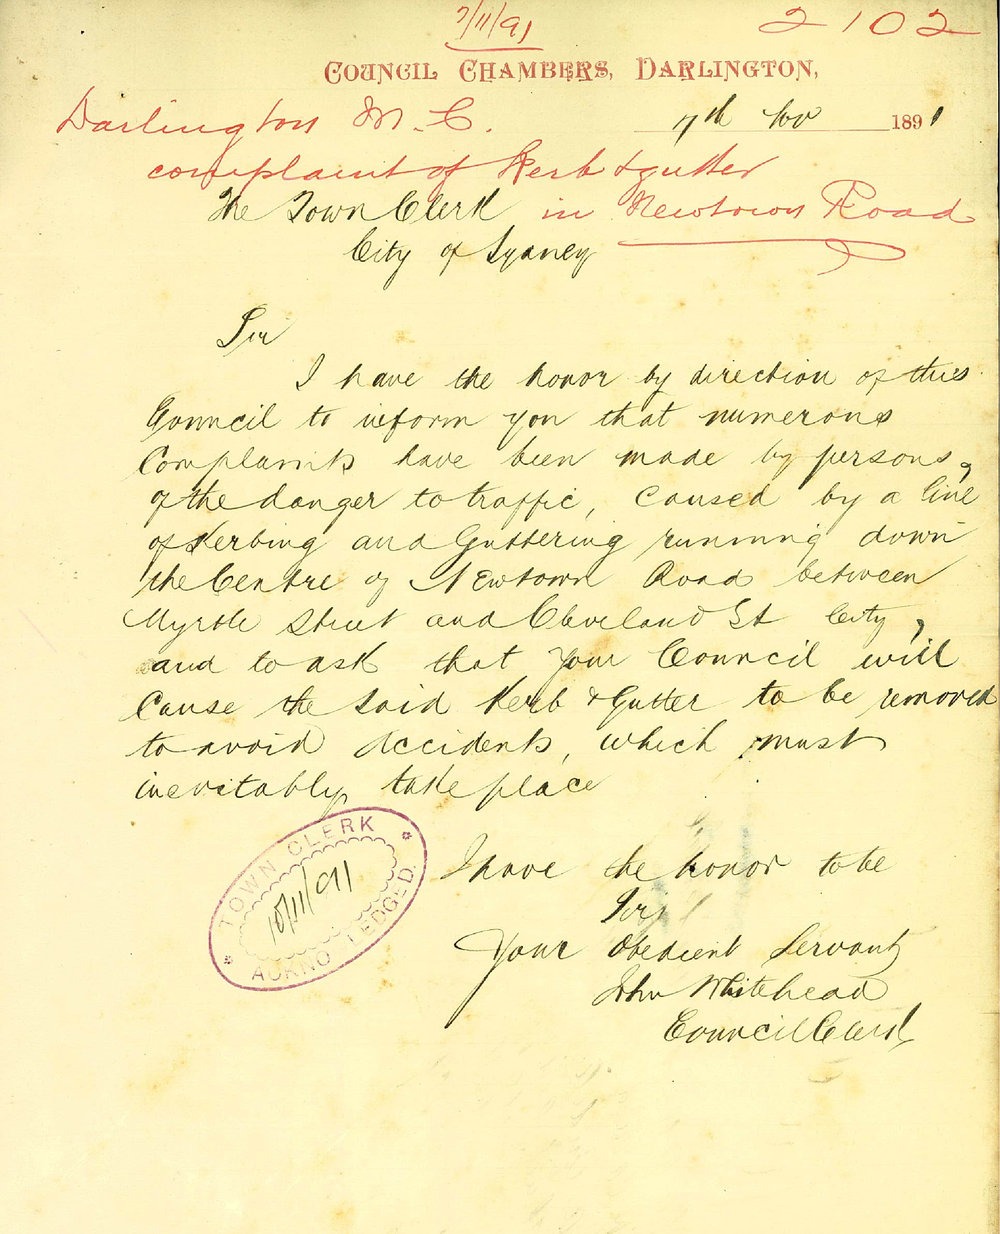 7/11/91
2102
COUNCIL CHAMBERS, DARLINGTON,
Darlington M. C.
7th Nov 1891
complaint of Kerb & gutter
The Town Clerk in Newtown Road
City of Sydney
Sir
I have the honor by direction of this
Council to inform you that numerous
Complaints have been made by persons,
of the danger to traffic, caused by a line
of Kerbing and Guttering running down
the Centre of Newtown Road between
Myrtle Street and Cleveland St City,
and to ask that your Council will
Cause the said Kerb & Gutter to be removed
to avoid Accidents, which must
inevitably take place
TOWN CLERK
10/11/91
ACKNOWLEDGED.
I have the honor to be
Sir
Your Obedient Servant
John Whitehead
Council Clerk